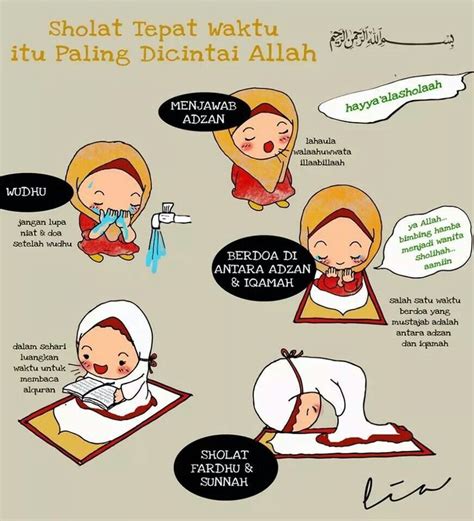 Sholat Tepat Waktu
itu Paling Dicintai Allah
بِسْمِ اللَّهِ الرَّحْمَنِ الرَّحِيمِ
MENJAWAB
ADZAN
hayya'alasholaah
lahaula
walaahuwwata
illaabillaah
WUDHU
jangan lupa
niat & doa
setelah wudhu
BERDOA DI
ANTARA ADZAN
& IQAMAH
ya Allah...
bimbing hamba
menjadi wanita
sholihah...
aamiin
salah satu waktu
berdoa yang
mustajab adalah
antara adzan
dan iqamah
dalam sehari
luangkan
waktu untuk
membaca
alquran
SHOLAT
FARDHU &
SUNNAH
lia